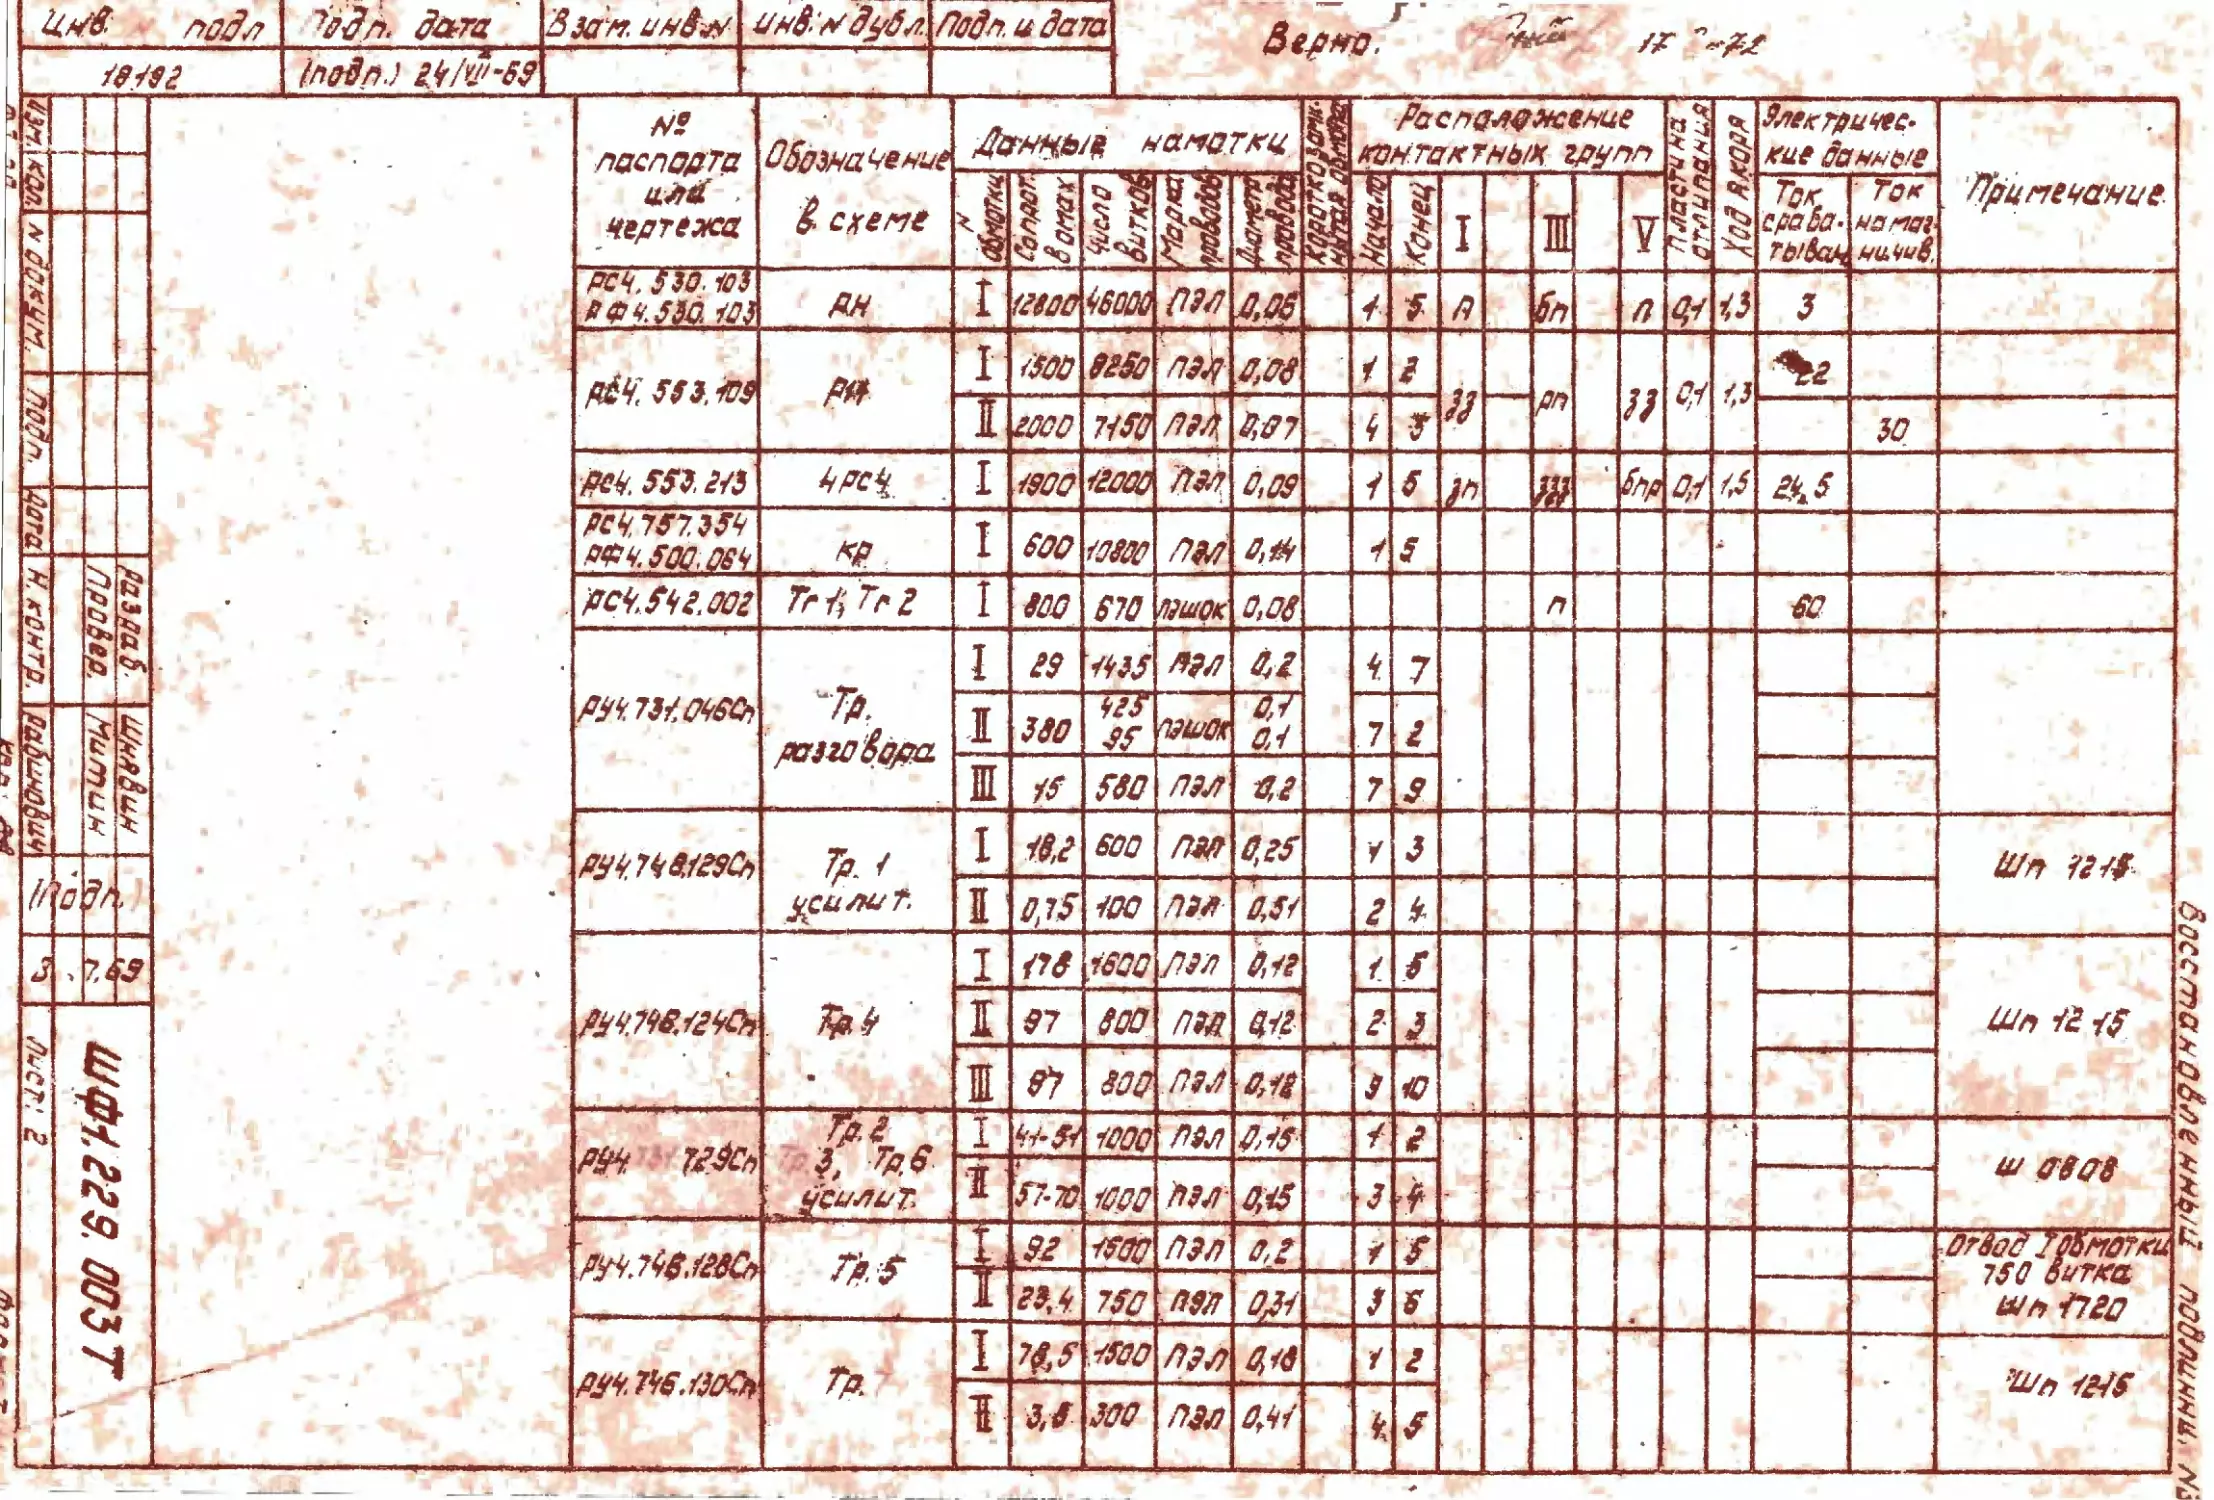 Инв. подл Подп. дата Взам. инв. № Инв. № дубл. Подп. и дата
18192 (подп.) 24/VII-69
Верно.
Изм. кол. № докум. подп. дата
Н. контр. Рабинович
Провер. Митин
Разраб. Шнявин
(Подп.)
3 .7.69
Лист: 2
ШФ1.229.003 Т
№ паспорта или чертежа
Обозначение в схеме
Данные намотки
№ обмотки
Сопрот. в омах
Число витков
Марка проводов
Диаметр провода
Короткозамкнутая обмотка
Расположение контактных групп
Начало Конец I III V
Пластина отлипания
Ход якоря
Электрические данные
Ток срабатыван.
Ток намагничив.
Примечание.
РС4.530.103 РФ4.530.103 РН I 12800 46000 ПЭЛ 0,06 1 5 п бп п 0,1 1,3 3
РС4.553.109 I 1500 8250 ПЭЛ 0,08 1 2 зз рп зз 0,1 1,3 22
II 2000 7150 ПЭЛ 0,07 4 30
РС4.553.213 4РС4 I 1900 12000 ПЭЛ 0,09 1 5 зп бпр 0,1 1,5 24,5
РС4.757.354 РФ4.500.064 КР I 600 10800 ПЭЛ 0,14 1 5
РС4.542.002 Тг1, Тг2 I 800 670 ПЭШОК 0,08 п 60
РУ4.731.046Сп Тр. разговора I 29 1435 ПЭЛ 0,2 4 7
II 380 425 95 ПЭШОК 0,1 0,1 7 2
III 15 580 ПЭЛ 0,2 7 9
РУ4.748.129Сп Тр. 1 усилит. I 18,2 600 ПЭЛ 0,25 1 3 Шп 1215
II 0,75 100 ПЭЛ 0,51 2 4
РУ4.746.124Сп Тр.4 I 178 1600 ПЭЛ 0,12 1 5 Шп 12 15
II 97 800 ПЭЛ 0,12 2 3
III 97 800 ПЭЛ 0,12 9 10
РУ4. 729Сп Тр.2 3, Тр.6 усилит. I 41-51 1000 ПЭЛ 0,15 1 2 Ш 0808
II 57-70 1000 ПЭЛ 0,15 3 4
РУ4.746.128Сп Тр.5 I 92 1500 ПЭЛ 0,2 1 5 Отвод I обмотки 750 витка Шп 1720
II 23,4 750 ПЭЛ 0,31 3 6
РУ4.746.130Сп Тр. I 78,5 1500 ПЭЛ 0,18 1 2 Шп 1215
II 300 ПЭЛ 0,41 4 5
Восстановленный подлинник №3